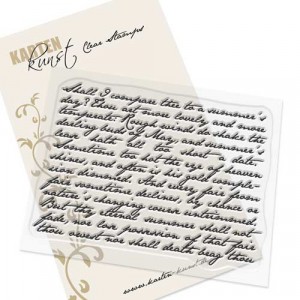 KARTEN
Kunst Clear Stamps
Shall I compare thee to a summer's
day? Thou art more lovely and more
temperate. Rough winds do shake the
darling buds of May and summer's
lease hath all too short a date.
Sometime too hot the eye of heaven
shines and often is his gold complex-
ion dimmed; and every fair from
fair sometime declines, by chance or
nature's changing course untrimmed.
But thy eternal summer shall not
fade nor lose possession of that fair
thou owest nor shall death brag thou
www.karten-kunst.de